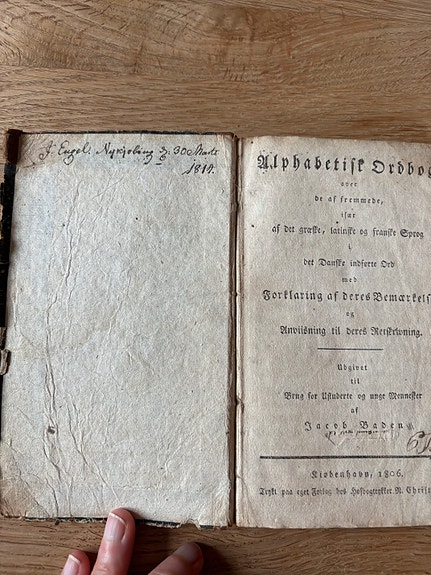 J. Engel. Nykjøbing 30 Marts
1814.
Alphabetisk Ordbog
over
de af fremmede,
især
af det græske, latinske og franske Sprog
i
det Danske indførte Ord
med
Forklaring af deres Bemærkelse
og
Anviisning til deres Retskrivning.
Udgivet
til
Brug for Ustuderte og unge Mennesker
af
Jacob Baden
Kiøbenhavn, 1806.
Trykt paa eget Forlag hos Hofbogtrykker N. Christ